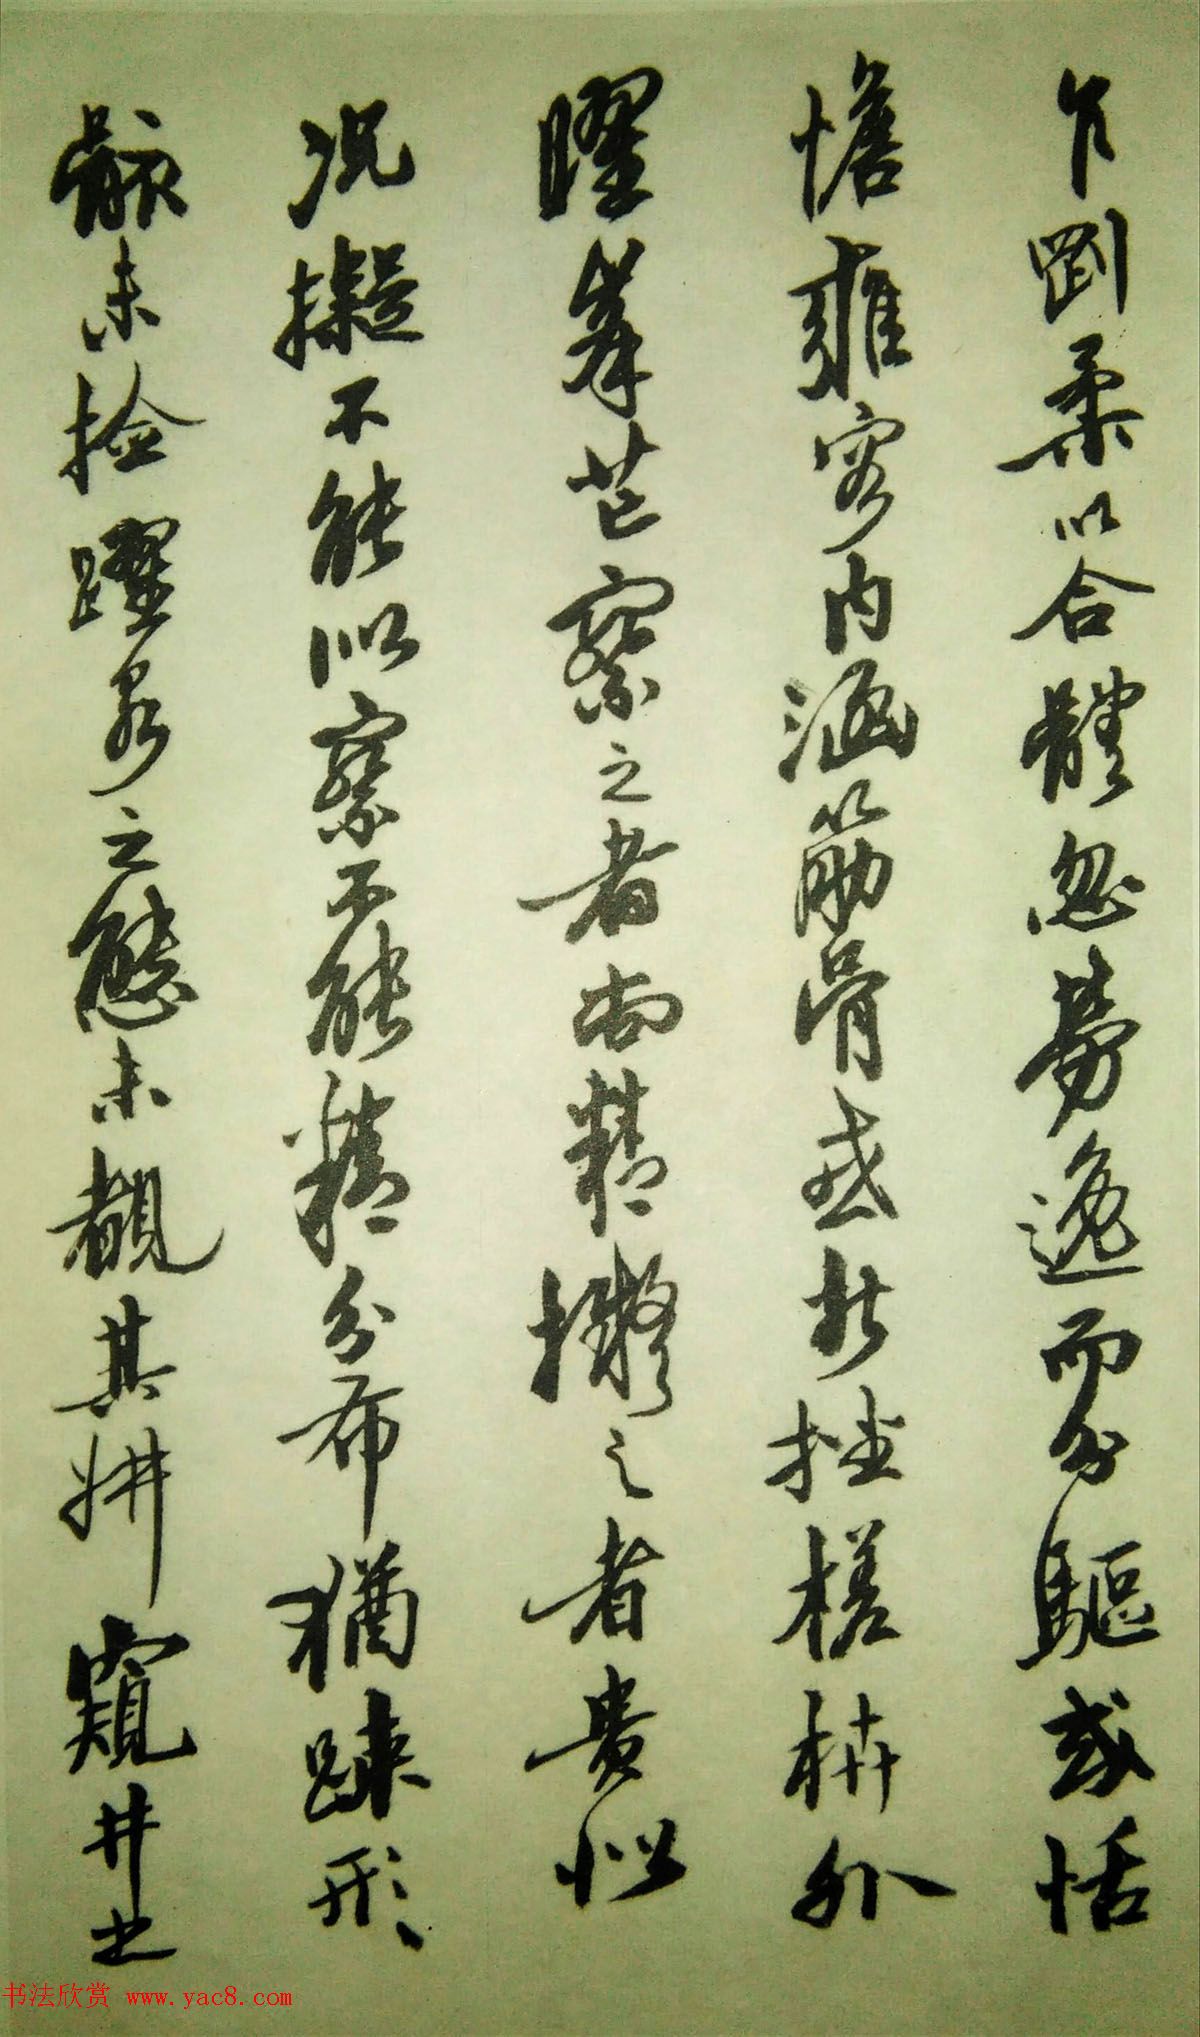 乍剛柔以合體忽勞逸而分驅或恬
憺雍容內涵筋骨或折挫槎枿外
曜峯芒察之者尚精擬之者貴似
况擬不能似察不能精分布猶踈形
骸未撿躍泉之態未覩其妍窺井之
书法欣赏 www.yac8.com